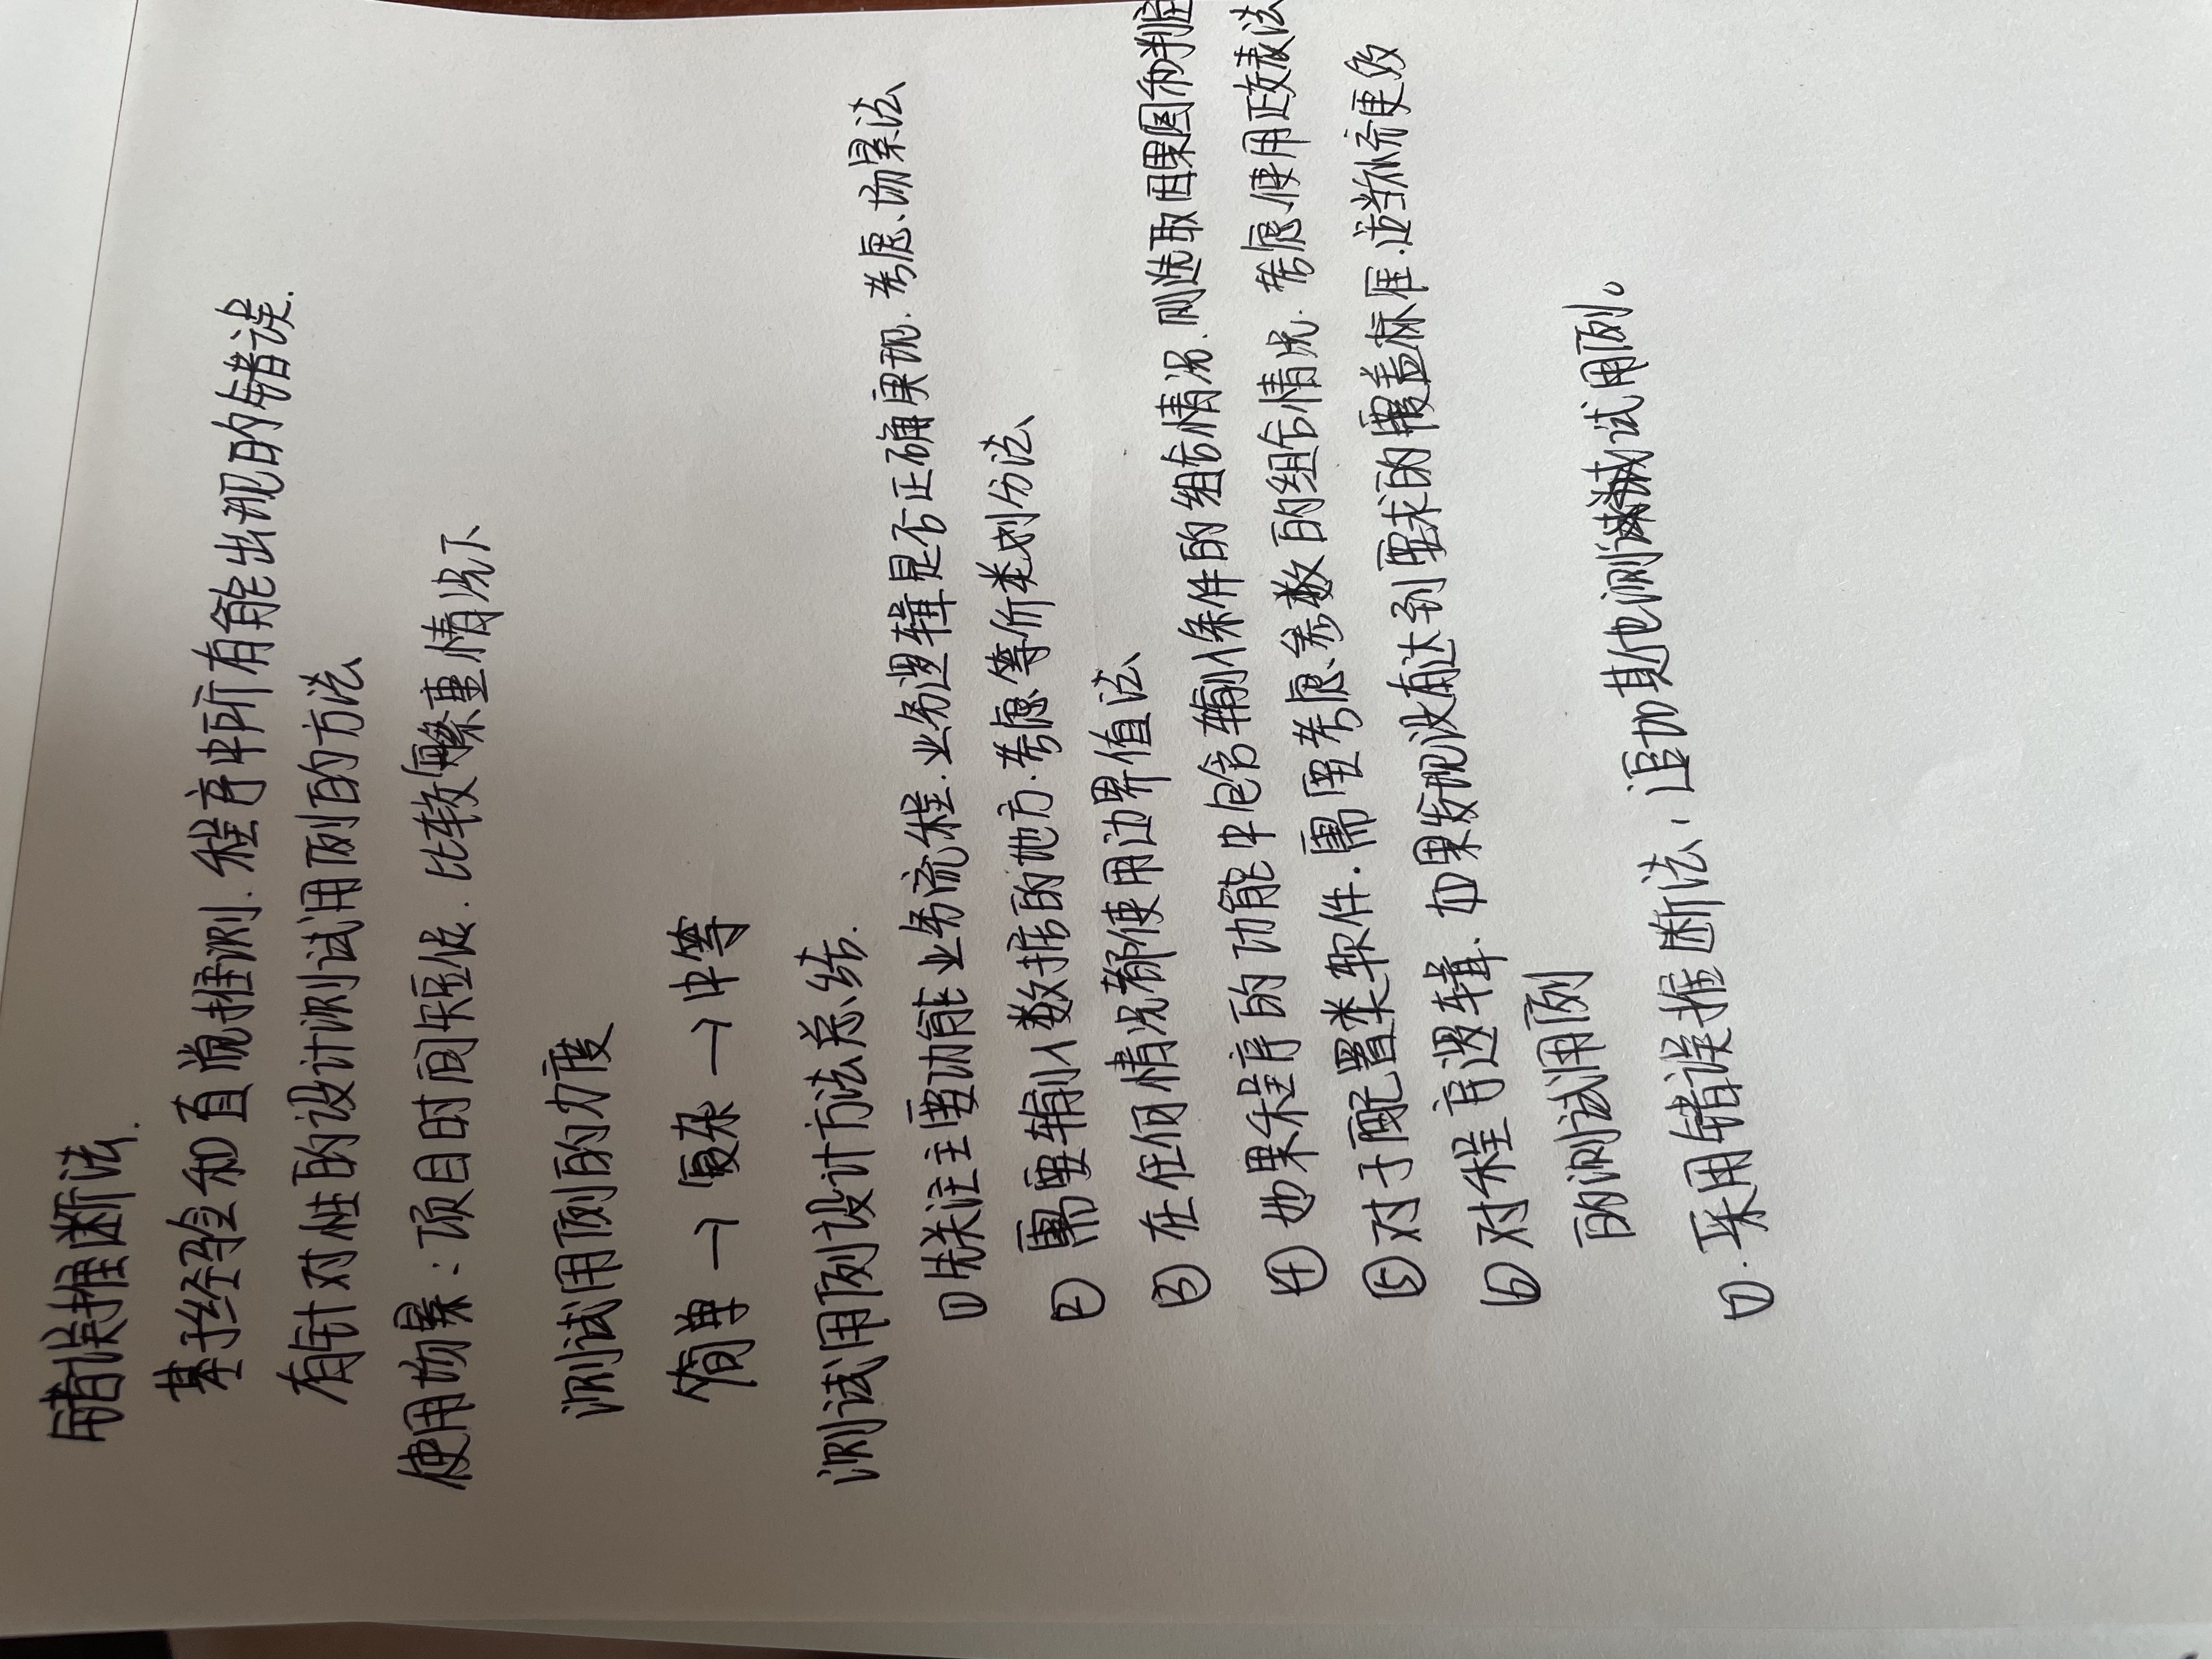 错误推断法.
基于经验和直觉推测.程序中所有能出现的错误.
有针对性的设计测试用例的方法
使用场景:项目时间短促.比较繁重情况下
测试用例的力度
简单 → 复杂 → 中等
测试用例设计方法总结.
①先关注主要功能业务流程.业务逻辑是否正确实现.考虑.场景法
② 需要输入数据的地方.考虑等价类划分法
③ 在任何情况都使用边界值法
④ 如果程序的功能中包含输入条件的组合情况.则选取因果图和判定
⑤ 对于配置类软件.需要考虑参数的组合情况.考虑使用正交表法
⑥ 对程序逻辑.如果发现没有达到要求的覆盖标准.应当补充更多
的测试用例
⑦.采用错误推断法,追加其他测试用例。